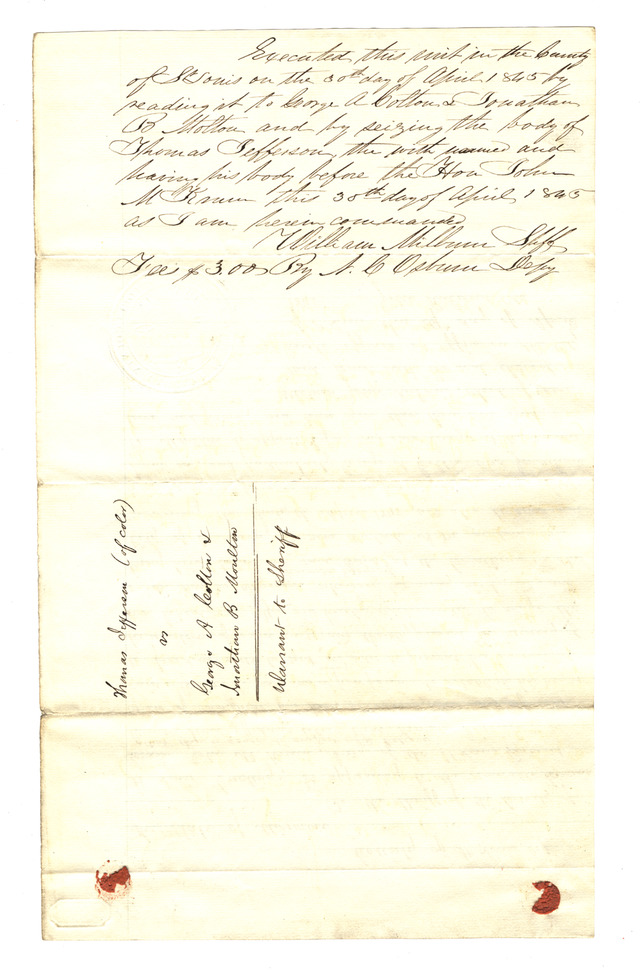 Executed this writ in the County
of St Louis on the 30th day of April 1845 by
reading it to George A Colton & Jonathan
B Molton and by seizing the body of
Thomas Jefferson the with named and
having his body before the Hon John
M Krum this 30th day of April 1845
as I am herein commanded
William Milburn Shff
Fee $3.00 By N. C Osburn Depy
Thomas Jefferson (of color)
vs
George A Colton &
Jonathan B Moulton
Warrant to Sheriff